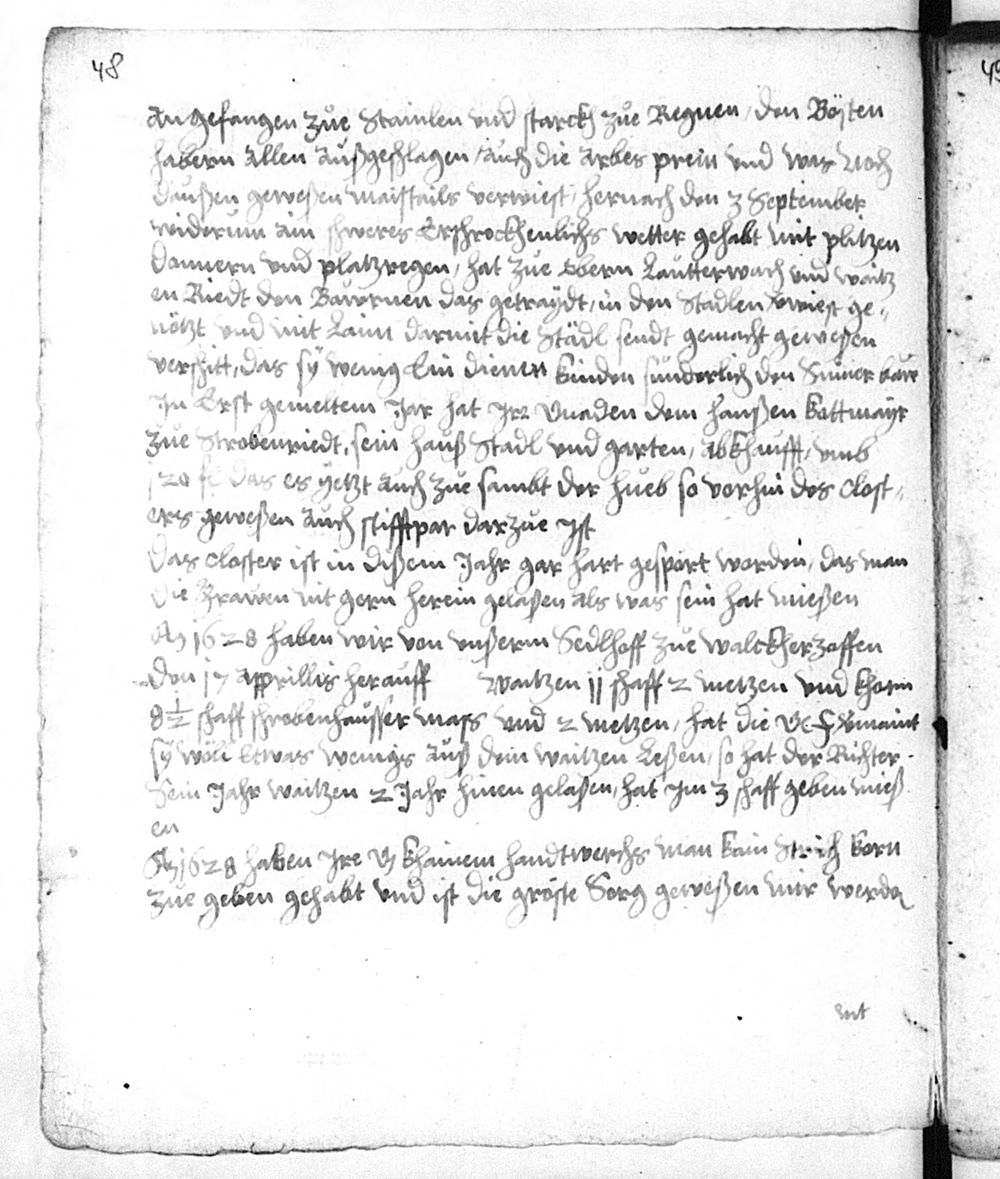 48
angefangen zue Stainlen vnd starckh zue Regnen, den Bösten
habern allen außgeschlagen, auch die arbes prein vnd was noch
daussen gewesen maistails verwiest, hernach den 3 September
widerum ain schweres Erschrockhenlichs wetter gehabt mit plitzen
donnern vnd platzregen, hat zue obern Lautterwach vnd waitz
en Riedt den Bauornen das getraydt, in den Stadlen verwiest ge-
nötzt vnd mit Laim darmit die Städl sendt gemacht gewesen
verschitt, das sÿ wenig Ein dienen kinden sunderlich den Sumer baw
In Erst gemeltem Jar hat Ire Gnaden dem hansen kottmayr
zue Strobenriedt, sein hauß Stadl vnd garten, abkhaufft, vmb
120 fl das es yetzt auch zue sambt der hueb so vorhin des Clost-
ers gewesen auch stifftpar darzue Ist
Das Closter ist in disem Jahr gar hart gespört worden, das man
die Frawen nit gern herein gelasen als was sein hat miesen
Aō 1628 haben wir von vnserm Sedlhoff zue walckherzoffen
den 17 apprillis herauff waitzen 11 schaff 2 metzen vnd khorn
8 1/2 schaff schrobenhausser mass vnd 2 metzen, hat die vermaint
sÿ wöll Etwas wenigs auß dem waitzen Lesen, so hat der Richter
Sein Jahr waitzen 2 Jahr hinen gelasen, hat Im 3 schaff geben mies
en
Aō 1628 haben Ire khainem handtwerchs man kain Strich korn
zue geben gehabt vnd ist die gröste Sorg gewesen mir werdn
mt